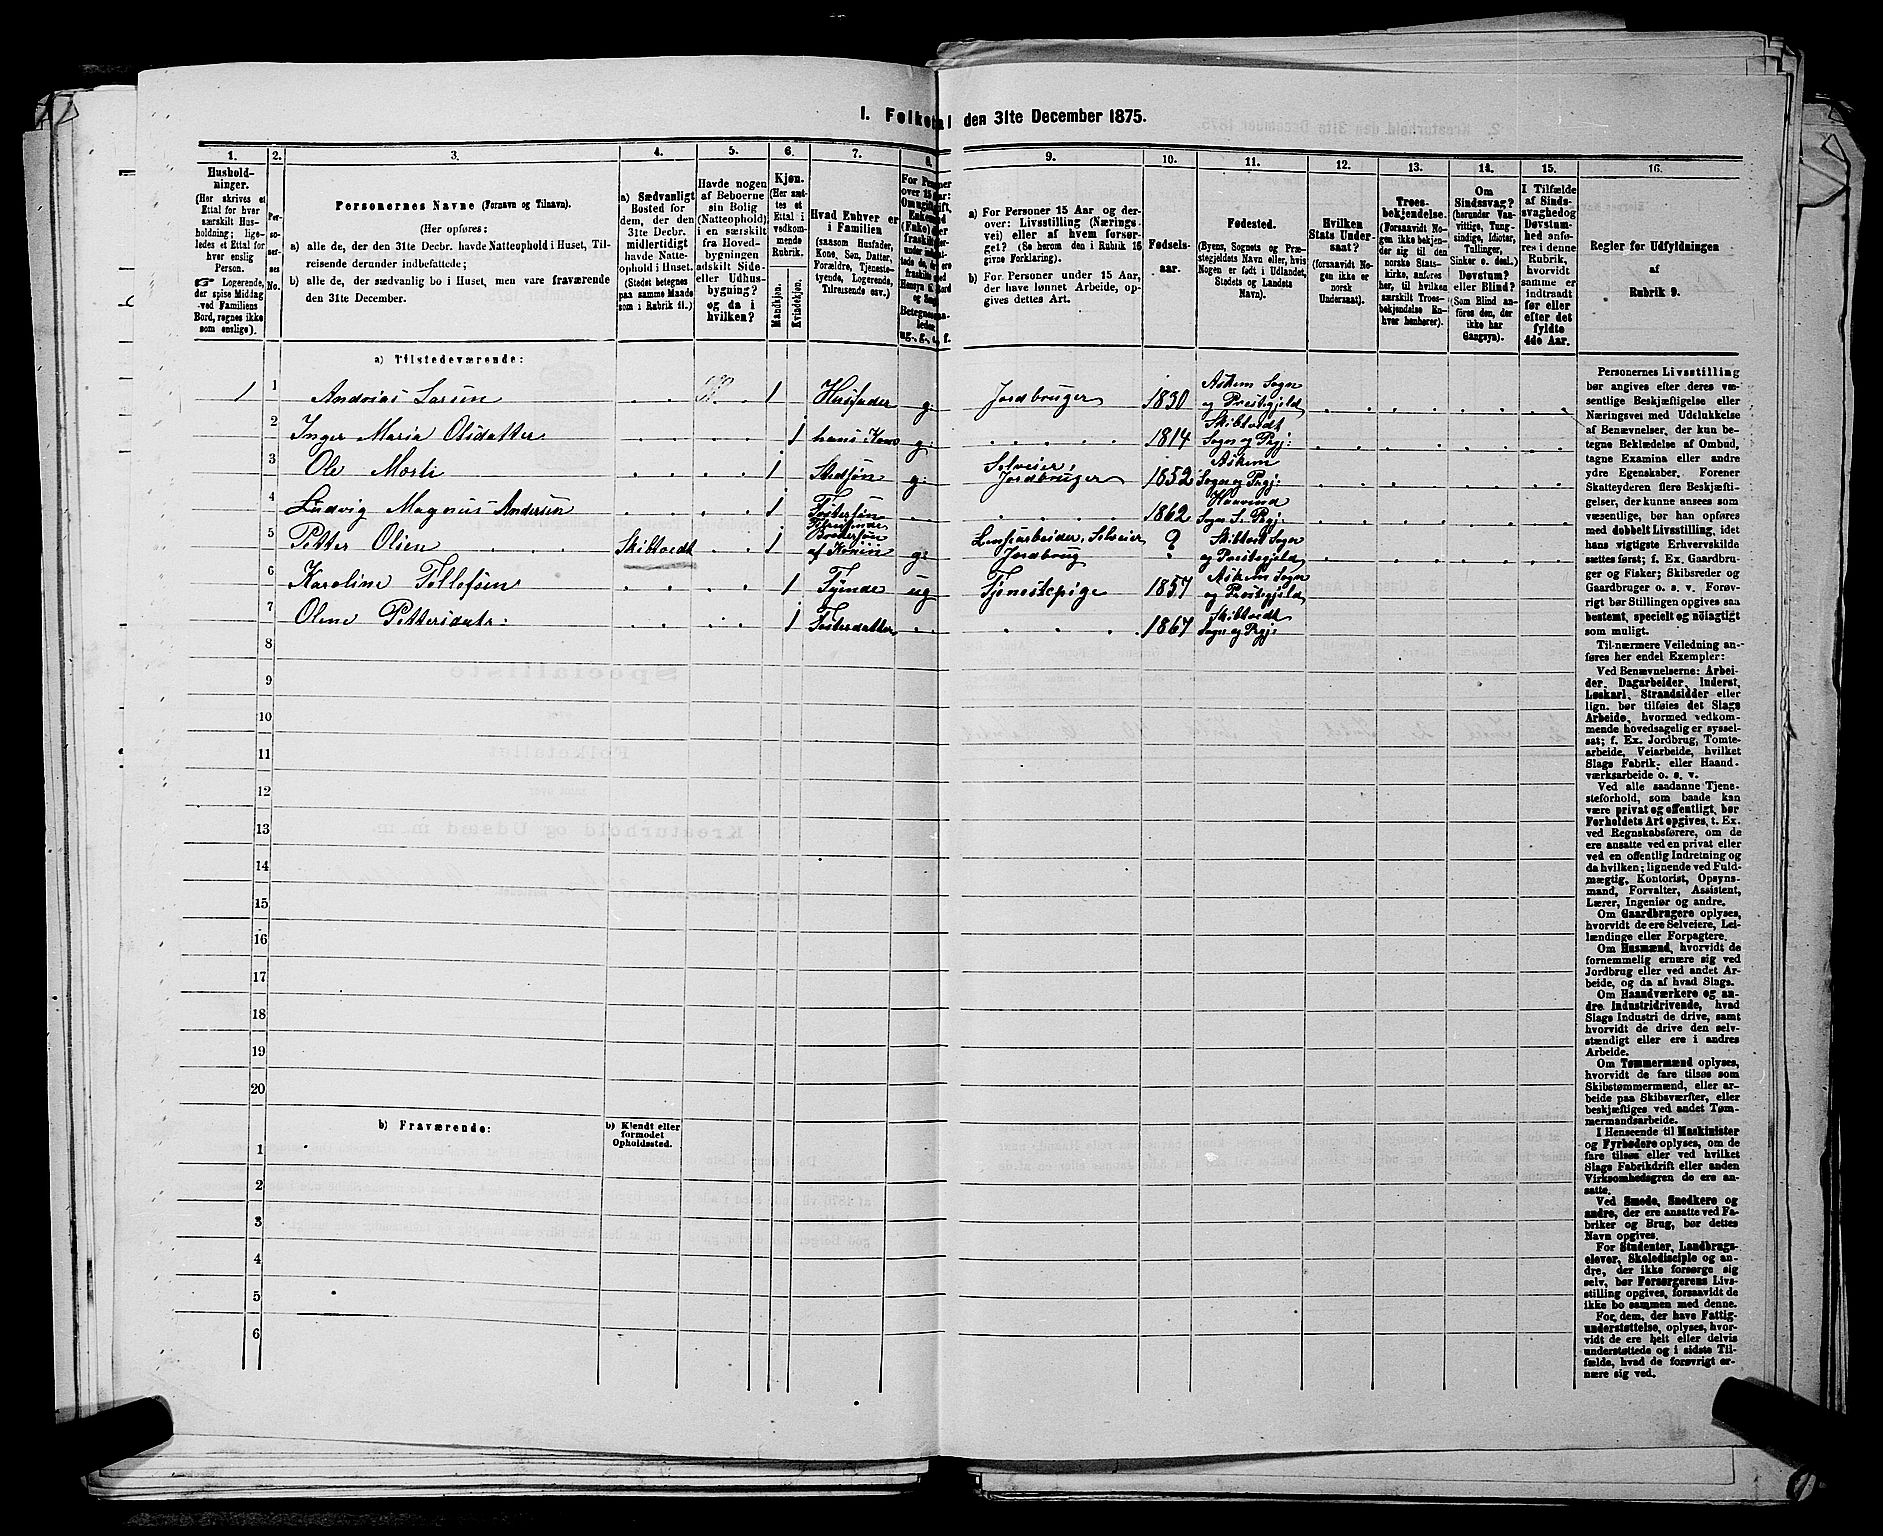 I. Folketal den 31te December 1875.
1. 2. 3. 4. 5. 6. 7. 8. 9. 10. 11. 12. 13. 14. 15. 16.
Hushold-
ninger.
(Her skrives et
Ettal for hver
særskilt Hus-
holdning; lige-
ledes et Ettal for
hver enslig
Person.
☞ Logerende,
der spise Middag
ved Familiens
Bord, regnes ikke
som enslige).
No.
Personernes Navne (Fornavn og Tilnavn).
(Her opføres:
a) alle de, der den 31te Decbr. havde Natteophold i Huset, Til-
reisende derunder indbefattede;
b) alle de, der sædvanlig bo i Huset, men vare fraværende
den 31te December.
a) Sædvanligt
Bosted for
dem, der den
31te Decbr.
midlertidigt
havde Natte-
ophold i Huset.
(Stedet betegnes
paa samme Maade
som i Rubrik 11.)
Havde nogen
af Beboerne
sin Bolig
(Natteophold)
i en særskilt
fra Hoved-
bygningen
adskilt Side-
eller Udhus-
bygning?
og da i
hvilken?
Kjøn.
(Her sæt-
tes et
Ettal i
vedkom-
mende
Rubrik.
Mandkjøn.
Kvindekjøn.
Hvad Enhver er
i Familien
(saasom Husfader,
Kone, Søn, Datter,
Forældre, Tjeneste-
tyende, Logerende,
Tilreisende osv.)
a) For Personer 15 Aar og der-
over: Livsstilling (Nærings-
vei) eller af hvem forsør-
get? (Se herom den i Rubrik 16
givne Forklaring).
b) For Personer under 15 Aar,
der have lønnet Arbeide, op-
gives dettes Art.
Fødsels-
aar.
Fødested.
(Byens, Sognets og Præ-
stegjeldets Navn eller, hvis
Nogen er født i Udlandet,
Stedets og Landets
Navn).
Hvilken
Stats Under-
saat?
(forsaavidt No-
gen ikke er
norsk
Undersaat).
Troes-
bekjendelse.
(Forsaavidt No-
gen ikke bekjen-
der sig til den
norske Stats-
kirke, anføres
her, til hvilken
særskilt Troes-
bekjendelse En-
hver henhører).
Om
Sindssvag?
(herunder Van-
vittige, Tung-
sindige, Idioter,
Tullinger,
Sinker o. desl.)
Døvstum?
eller Blind?
(Som Blind an-
føres den, der
ikke har
Gangsyn).
I Tilfælde
af Sinds-
svaghed og
Døvstum-
hed anfø-
res i denne
Rubrik,
hvorvidt
samme er
indtraadt
før eller
efter det
fyldte
4de Aar.
Regler for Udfyldningen
af
Rubrik 9.
a) Tilstedeværende:
1 1 Andreas Larsen 1 Husfader g. Jordbruger 1830 Askem Sogn
og Prestegjeld
2 Inger Maria Olsdatter 1 hans Kone g. 1814 Skibtvedt
Sogn og Prgj:
3 Ole Morti 1 Stedsøn g. Selveier,
Jordbruger 1852 Askem
Sogn og Prgj:
4 Ludvig Magnus Andersen 1 Fostersøn 1862
5 Petter Olsen Skibtvedt 1 Brodersøn
af Konen g: Selveier
Jordbrug ? Skibtvet Sogn
og Prestegjeld
6 Karoline Tellefsen 1 Tyende ug Tjenestepige 1857 Askem Sogn
og Prestegjeld
7 Oline Pettersdatr: 1 Fosterdatter 1867 Skibtvedt
Sogn og Prgj:
8
9
10
11
12
13
14
15
16
17
18
19
20
b) Fraværende:
b) Kjendt eller
formodet
Opholdssted.
1
2
3
4
5
6
Personernes Livsstilling
bør angives efter deres væ-
sentlige Beskjæftigelse eller
Næringsvei med Udelukkelse
af Benævnelser, der kun be-
tegne Beklædelse af Ombud,
tagne Examina eller andre
ydre Egenskaber. Forener
Skatteyderen flere Beskjæfti-
gelser, der kunne ansees som
væsentlige, bør han opføres
med dobbelt Livsstilling, idet
hans vigtigste Erhvervskilde
sættes først; f. Ex. Gaardbru-
ger og Fisker; Skibsreder og
Gaardbruger o. s. v. Forøv-
rigt bør Stillingen opgives saa
bestemt, specielt og nøiagtigt
som muligt.
Til nærmere Veiledning an-
føres her endel Exempler:
Ved Benævnelserne: Arbei-
der, Dagarbeider, Inderst,
Løskarl, Strandsidder eller
lign. bør tilføies det Slags
Arbeide, hvormed vedkom-
mende hovedsagelig er syssel-
sat; f. Ex. Jordbrug, Tomte-
arbeide, Veiarbeide, hvilket
Slags Fabrik- eller Haand-
værksarbeide o. s. v.
Ved alle saadanne Tjene-
steforhold, som baade kan
være privat og offentligt, bør
Forholdets Art opgives, t. Ex.
ved Regnskabsførere, om de
ere ansatte ved en privat eller
ved en offentlig Indretning og
da hvilken; lignende ved Fuld-
mægtig, Kontorist, Opsyns-
mand, Forvalter, Assistent,
Lærer, Ingeniør og andre.
Om Gaardbrugere oplyses,
hvorvidt de ere Selveiere, Lei-
lændinge eller Forpagtere.
Om Husmænd, hvorvidt de
fornemmelig ernære sig ved
Jordbrug eller ved andet Ar-
beide, og da af hvad Slags.
Om Haandværkere og an-
dre Industridrivende, hvad
Slags Industri de drive, samt
hvorvidt de drive den selv-
stændigt eller ere i andres
Arbeide.
Om Tømmermænd oplyses,
hvorvidt de fare tilsøs som
Skibstømmermænd, eller ar-
beide paa Skibsværfter, eller
beskjæftiges ved andet Tøm-
mermandsarbeide.
I Henseende til Maskinister
og Fyrbødere oplyses, om de
fare tilsøs eller ved hvilket
Slags Fabrikdrift eller anden
Virksomhedsgren de ere an-
satte.
Ved Smede, Snedkere og
andre, der ere ansatte ved Fa-
briker og Brug, bør dettes
Navn opgives.
For Studenter, Landbrugs-
elever, Skoledisciple og an-
dre, der ikke forsørge sig
selv, bør Forsørgerens Livs-
stilling opgives, forsaavidt de
ikke bo sammen med denne.
For dem, der have Fattig-
understøttelse, oplyses, hvor-
vidt de ere helt eller delvis
understøttede og i sidste Til-
fælde, hvad de forøvrigt er-
nære sig ved.